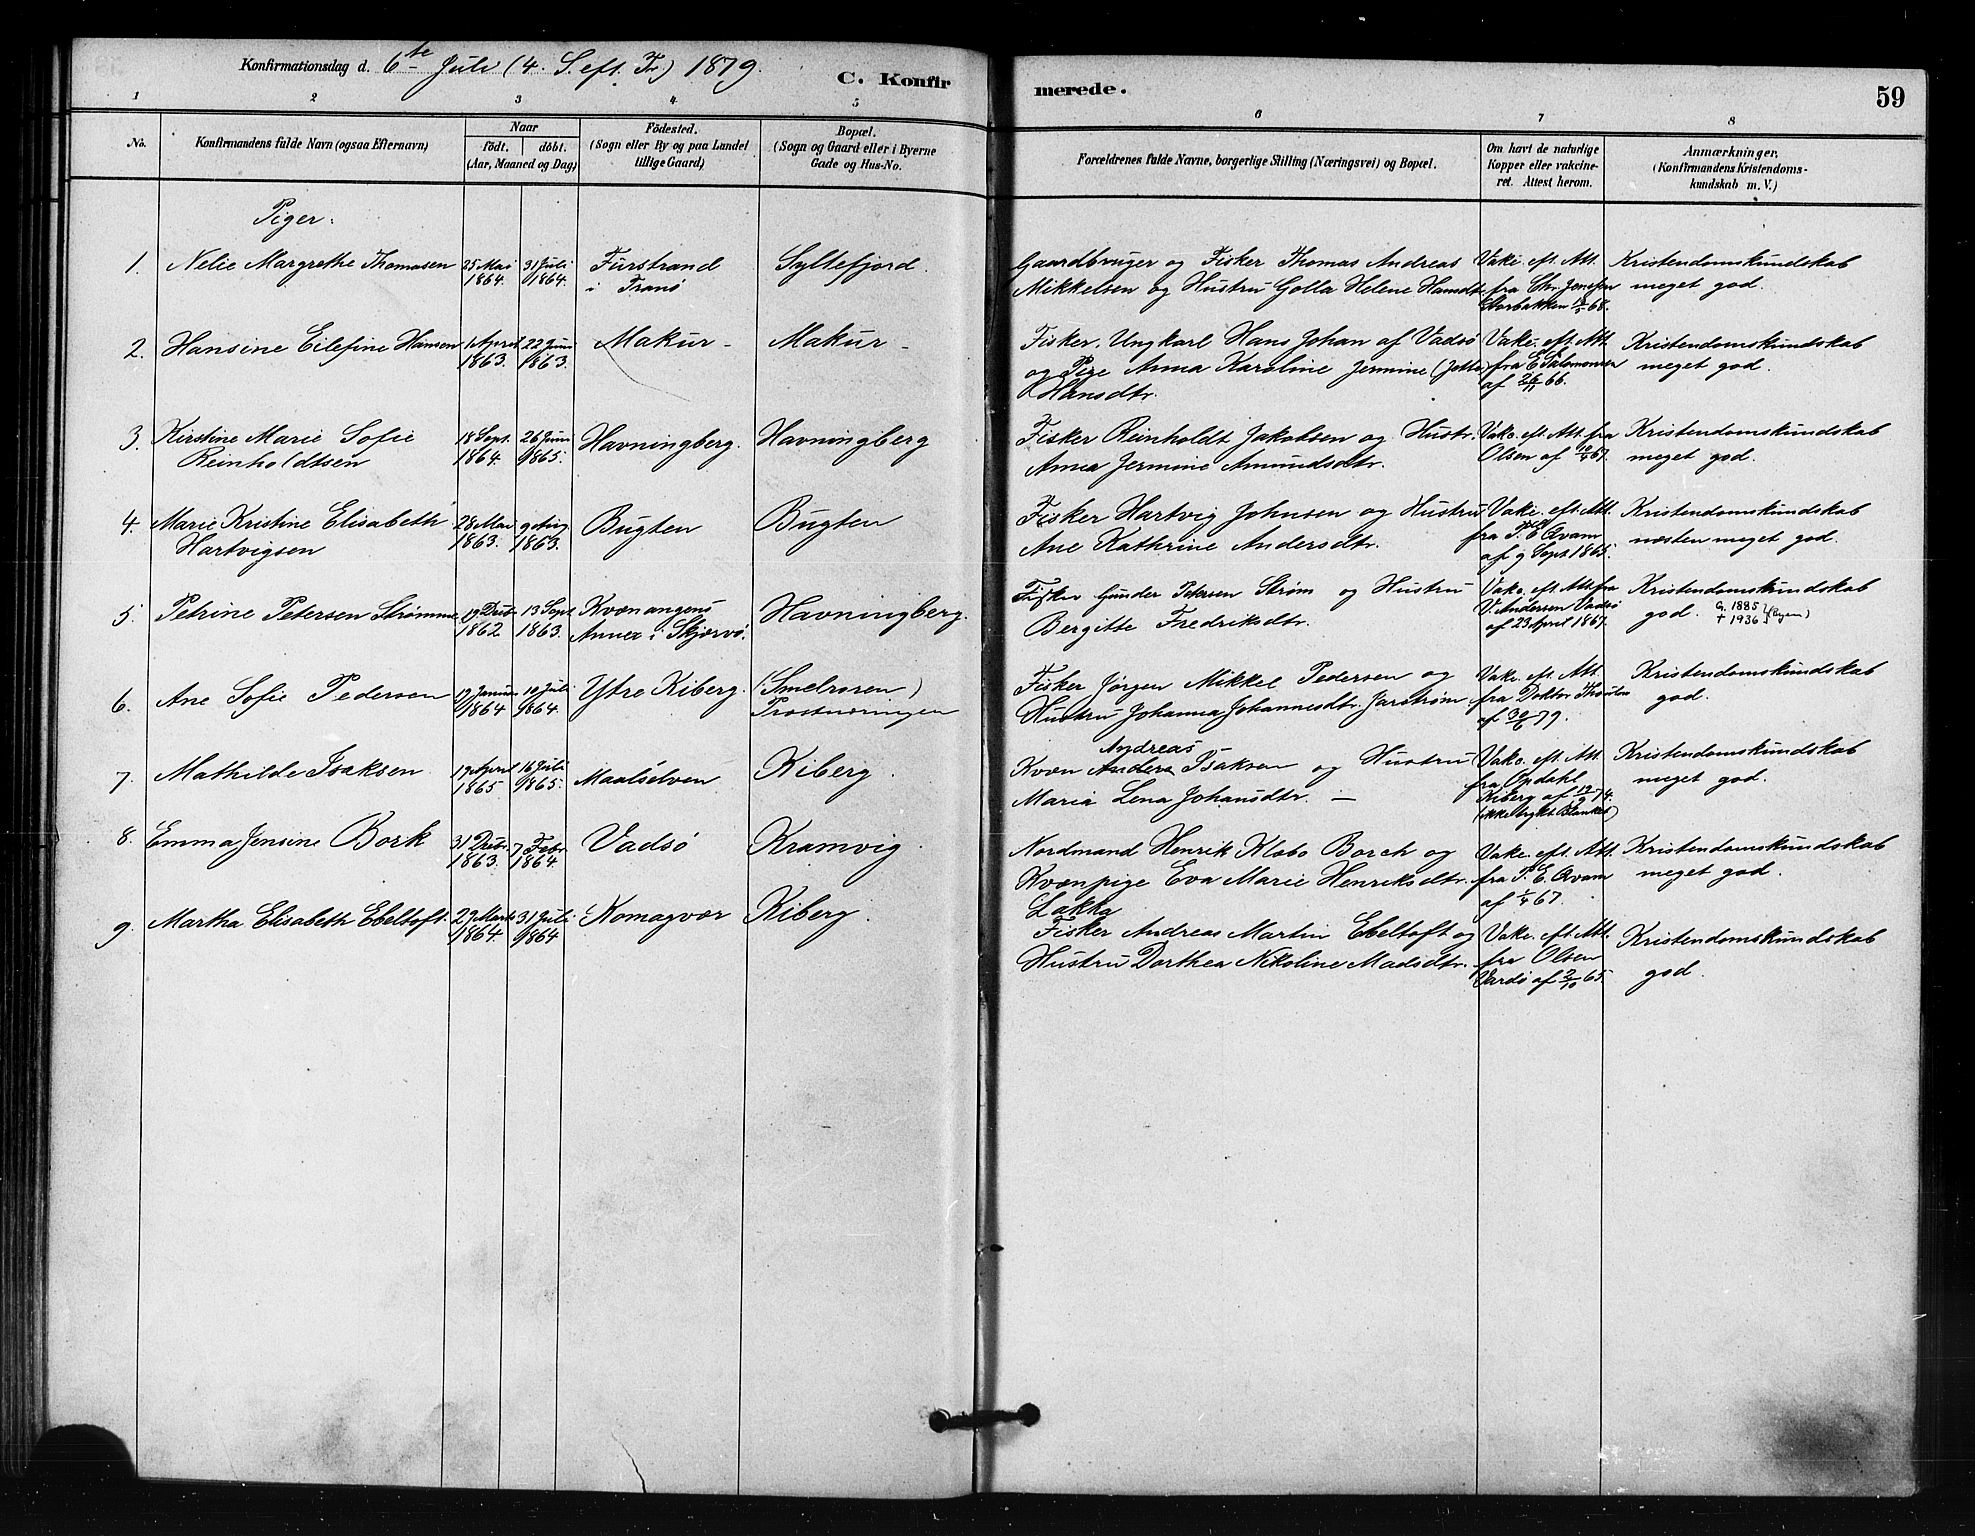 Konfirmationsdag d. 6te Juli (4. S. eft. Tr.) 1879.
C. Konfirmerede.
59
1 2 3 4 5 6 7 8
No.
Konfirmandens fulde Navn (ogsaa Efternavn)
Naar
födt. döbt.
(Aar, Maaned og Dag)
Födested.
(Sogn eller By og paa Landet
tillige Gaard)
Bopæl.
(Sogn og Gaard eller i Byerne
Gade og Hus-No.
Forældrenes fulde Navne, borgerlige Stilling (Næringsvei) og Bopæl.
Om havt de naturlige
Kopper eller vakcine-
ret. Attest herom.
Anmærkninger.
(Konfirmandens Kristendoms-
kundskab m. V.)
Piger.
1. Nelie Margrethe Thomasen
25 Mai
1864.
31 Juli
1864.
Furstrand
i Tranö
Syltefjord
Gaardbruger og Fisker Thomas Andreas
Mikkelsen og Hustru Golla Helene Hansdt.
Vakc. eft. Att.
fra Chr. Jensen
Storbakken 68.
Kristendomskundskab
meget god.
2. Hansine Eilefine Hansen
1 April
1863.
22 Juni
1863.
Makur -
Makur -
Fisker, Ungkarl Hans Johan af Vadsö
og Pige Anna Karoline Jermine (Jette)
Hansdtr.
Vakc. eft. Att.
fra E. Salomonsen
af 26/11 66.
Kristendomskundskab
meget god.
3. Kirstine Marie Sofie
Reinholdtsen
18 Sept.
1864.
26 Juni
1865.
Havningberg.
Havningberg
Fisker Reinholdt Jakobsen og Hustr.
Anna Jermine Amundsdtr.
Vakc. eft. Att. fra
Olsen af 67.
Kristendomskundskab
meget god.
4. Marie Kristine Elisabeth
Hartvigsen
28 Mai
1863.
9 Aug
1863.
Bugten
Bugten
Fisker Hartvig Johnsen og Hustru
Ane Kathrine Andersdtr.
Vakc. eft. Att.
fra P. E. Qvam
af 9 Sept. 1865.
Kristendomskundskab
næsten meget god.
5. Petrine Petersen Strömme
19 Decbr
1862
13 Sept
1863.
Kvænangens
Annex i Skjervö.
Havningberg.
Fisker Gunder Petersen Ström og Hustru
Bergitte Fredriksdtr.
Vakc. eft. Att. fra
V. Andersen Vadsö
af 23 April 1867.
Kristendomskundskab
god. G. 1885
+ 1936
6. Ane Sofie Pedersen
19 Januar
1864
10 Juli
1864.
Ytre Kiberg.
(Smelroren)
Prostnæringen
Fisker Jörgen Mikkel Pedersen og
Hustru Johanna Johannesdtr. Jarström
Vakc. eft. Att.
fra Doktor
af 30/6 79.
Kristendomskundskab
god.
7. Mathilde Isaksen
19 April
1865
16 Juli
1865.
Maalselven
Kiberg.
Andreas
Kvæn Anders Isaksen og Hustru
Maria Lena Johansdtr. —
Vakc. eft. Att.
fra Opdahl
Kiberg af 74.
(ikke trykt Blanket)
Kristendomskundskab
meget god.
8. Emma Jensine Bork
31 Decbr.
1863.
7 Febr.
1864
Vadsö
Kramvig.
Nordmand Henrik Klabo Borch og
Kvænpige Eva Marie Henriksdtr.
Lakka
Vakc. eft. Att.
fra P. E. Qvam
af 67.
Kristendomskundskab
meget god.
9. Martha Elisabeth Ebeltoft.
27 Marts
1864.
31 Juli
1864
Komagvær
Kiberg.
Fisker Andreas Martin Ebeltoft og
Hustru Dorthea Nikoline Madsdtr.
Vakc. eft. Att.
fra Olsen
Vardö af 2/10 65.
Kristendomskundskab
god.